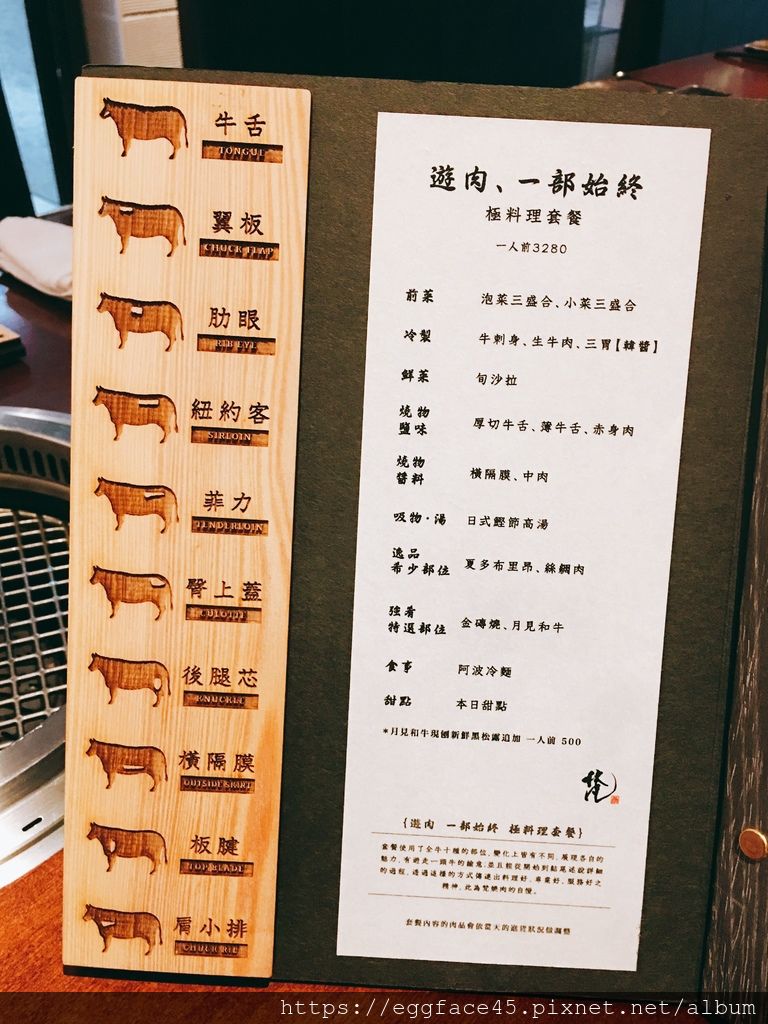 牛舌
TONGUE
翼板
CHUCK FLAP
肋眼
RIB EYE
紐約客
SIRLOIN
菲力
TENDERLOIN
臀上蓋
CULOTTE
後腿芯
KNUCKLE
橫隔膜
OUTSIDE SKIRT
板腱
TOP BLADE
肩小排
CHUCK RIB
遊肉、一部始終
極料理套餐
一人前3280
前菜 泡菜三盛合、小菜三盛合
冷製 牛刺身、生牛肉、三胃【韓醬】
鮮菜 旬沙拉
燒物
鹽味 厚切牛舌、薄牛舌、赤身肉
燒物
醬料 橫隔膜、中肉
吸物·湯 日式鰹節高湯
逸品
希少部位 夏多布里昂、絲綢肉
強肴
特選部位 金磚燒、月見和牛
食事 阿波冷麵
甜點 本日甜點
*月見和牛現刨新鮮黑松露追加 一人前 500
梵
{遊肉 一部始終 極料理套餐}
套餐使用了全牛十種的部位,變化上皆有不同,展現各自的
魅力,有遊走一頭牛的
的過程,透過這樣的方式傳達出料理好、專業好、服務好之
精神,此為梵燒肉的自慢。
套餐內容的肉品會依當天的進貨狀況做調整
https://eggface45.pixnet.net/album